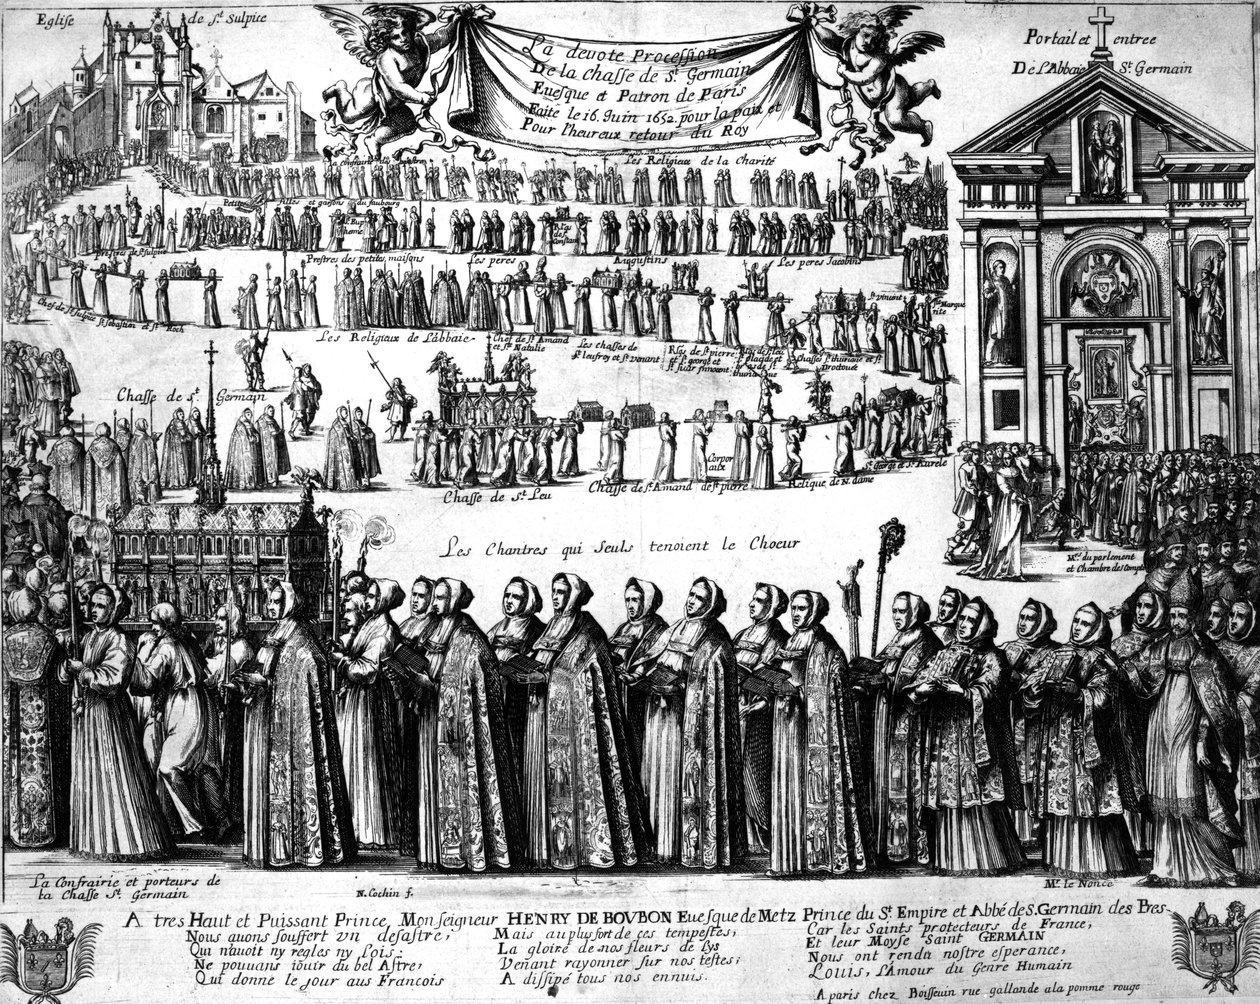 Eglise de St. Sulpice
La devote Procession
De la Chasse de St. Germain
Euesque et Patron de Paris
Faite le 16. Juin 1652. pour la paix et
Pour l'heureux retour du Roy
Portail et entree
De L'Abbaie St. Germain
Les Religieux de la Charité
Petites filles et garsons du faubourg
Prestres de St. Sulpice
Prestres des petites maisons
Les peres Augustins
Les peres Jacobins
Chef de St. Sulpice St. Sebastien et St. Roch
Les Religieux de L'abbaie
Chef de St. Amand
et Ste. Natalie
Les chasses de
St. leufroy et St. venant
St. vincent
Ste. Margue
rite
Chasse de St. Germain
Chasse de St. Leu
Chasse de St. Amand de St. pierre
Corpor
aux
Relique de N. dame
St. george et St. Aurele
Les Chantres qui seuls tenoient le Choeur
Mrs. du parlement
et Chambre des Compte
La Confrairie et porteurs de
la Chasse St. Germain
N. Cochin f.
Mr. le Nonce
A tres Haut et Puissant Prince, Monseigneur HENRY DE BOVBON Euesque de Metz Prince du St. Empire et Abbé de S. Germain des Pres
Nous auons souffert vn desastre,
Qui nauoit ny regles ny lois:
Ne pouuans iöuir du bel Astre,
Qui donne le jour aus Francois
Mais au plus fort de ces tempestes,
La gloire de nos fleurs de lys
Venant rayonner sur nos testes,
A dissipé tous nos ennuis.
Car les Saints protecteurs de France,
Et leur Moyse Saint GERMAIN
Nous ont renda nostre esperance,
Louis, l'Amour du Genre Humain
A paris chez Boisseuin rue gallande a la pomme rouge